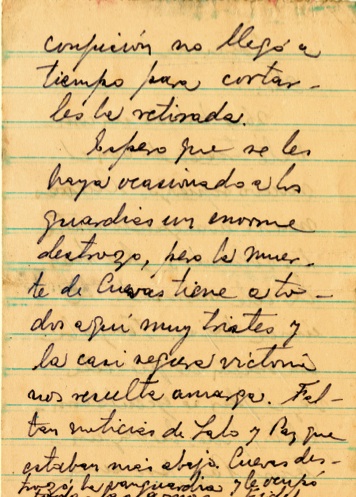 confusión no llegó a
tiempo para cortar-
les la retirada.
Espero que se les
haya ocasionado a los
guardias un enorme
destrozo, pero la muer-
te de Cuevas tiene a to-
dos aquí muy tristes y
la casi segura victoria
nos resulta amarga. Fal-
tan noticias de Lalo y Paz que
estaban mas abajo. Cuevas des-
trozó la vanguardia y le ocupó